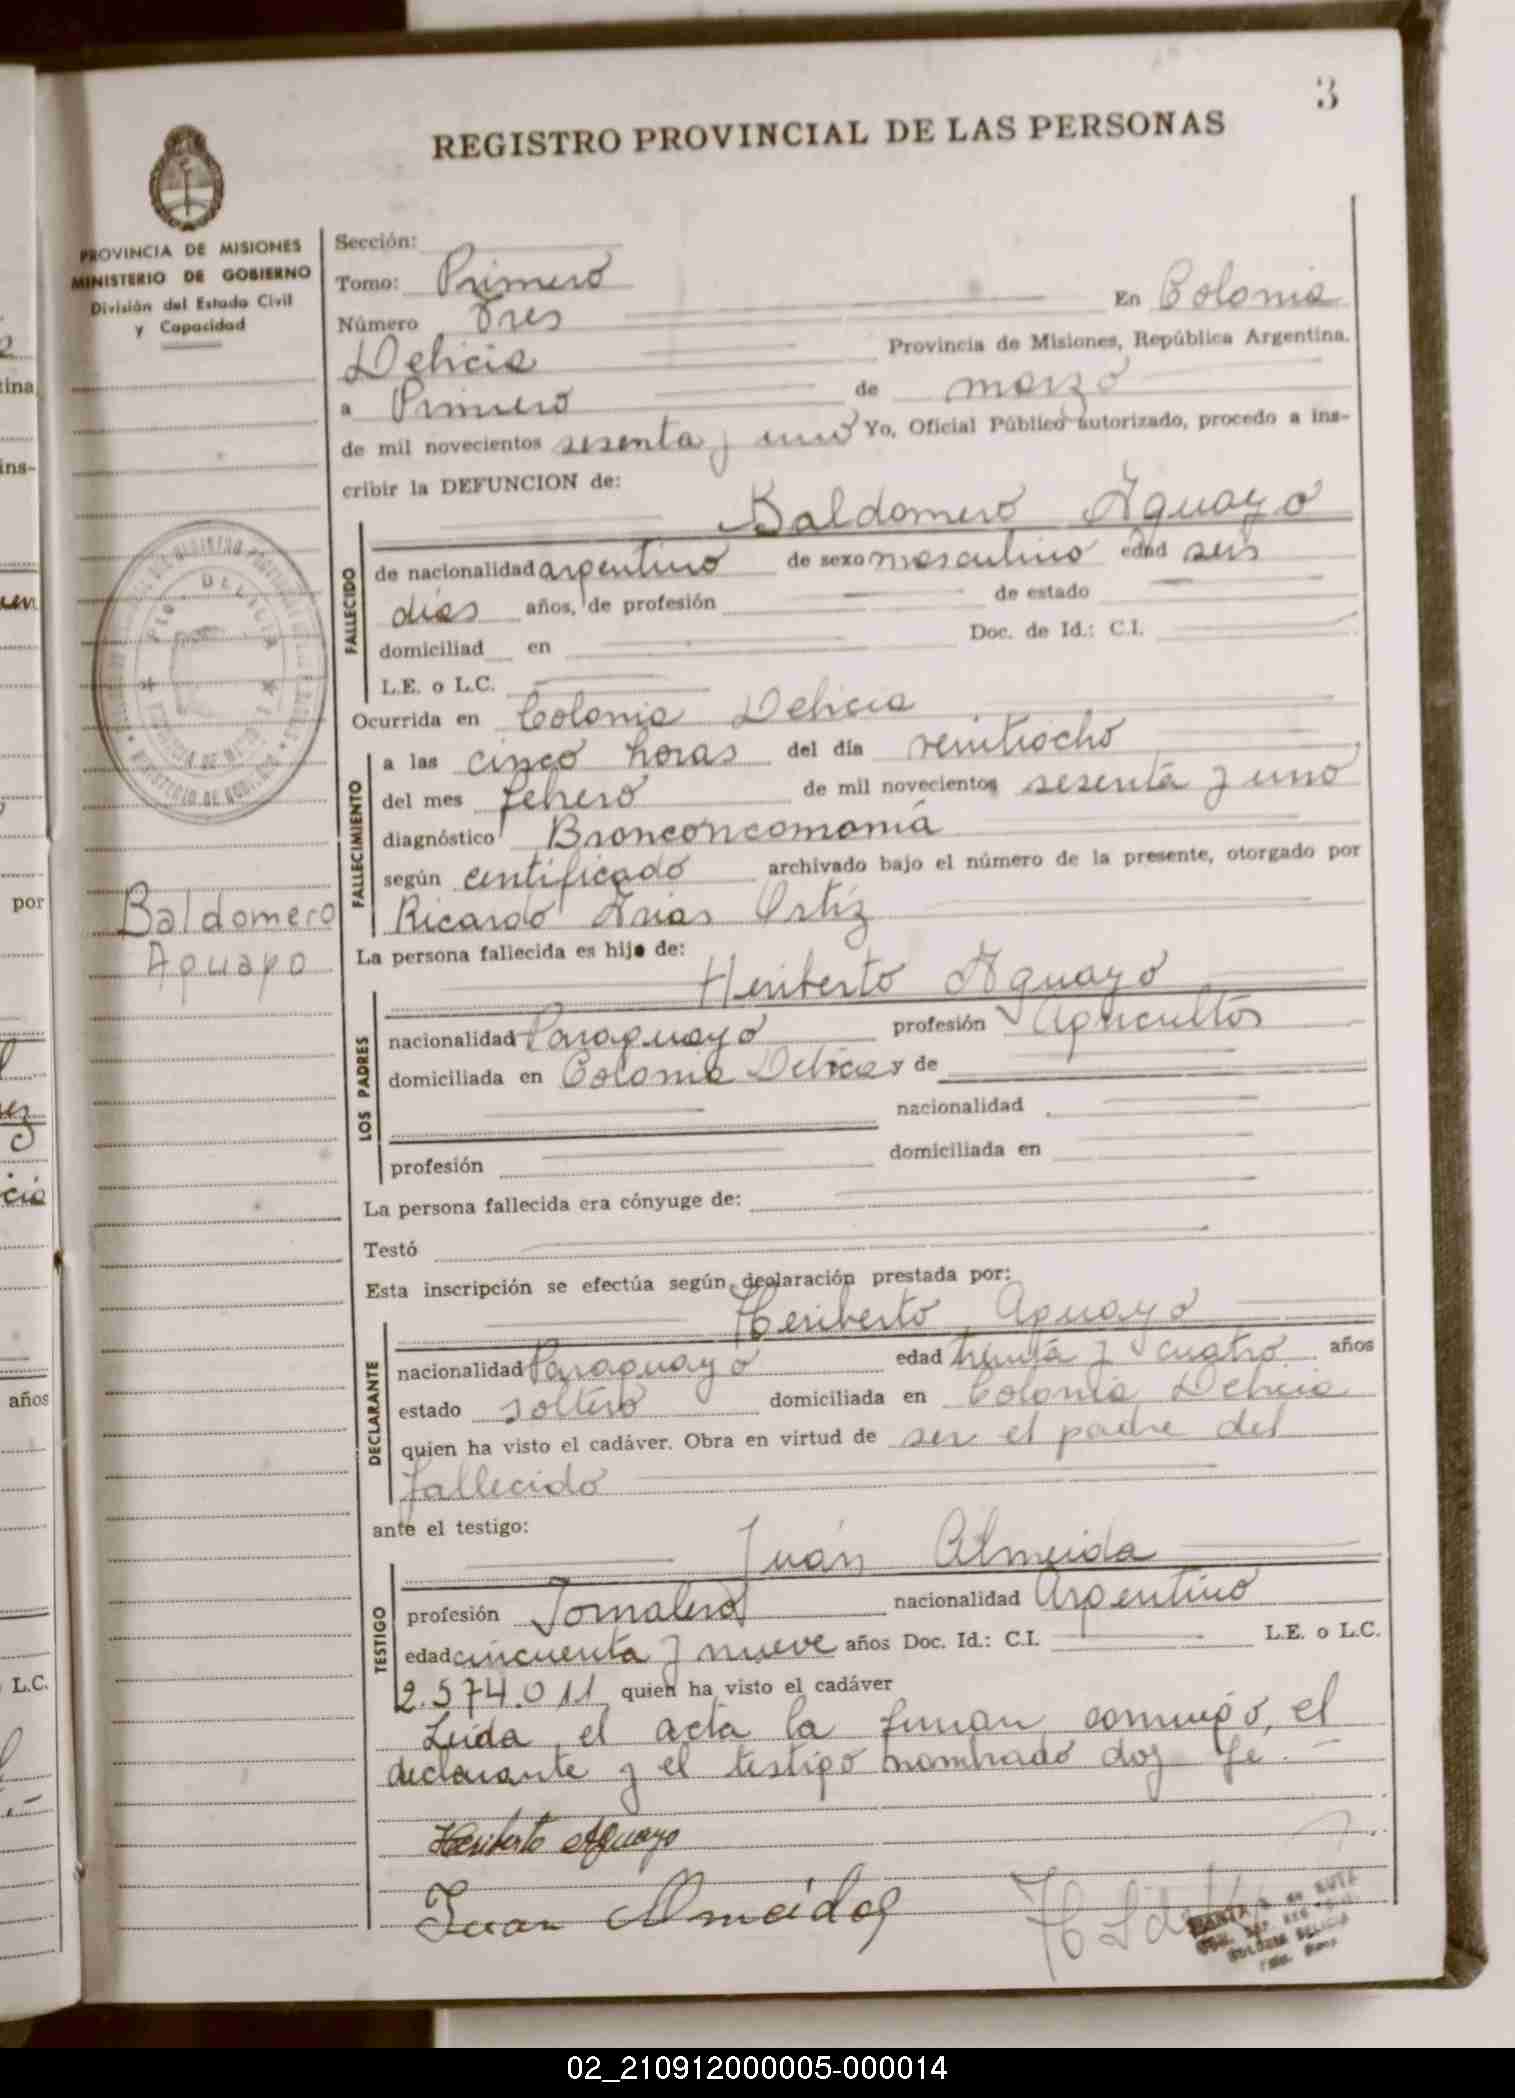 3
REGISTRO PROVINCIAL DE LAS PERSONAS
PROVINCIA DE MISIONES
MINISTERIO DE GOBIERNO
División del Estado Civil
y Capacidad
Sección:
Tomo: Primero
En Colonia
Número Tres
Delicia Provincia de Misiones, República Argentina.
a Primero de marzo
de mil novecientos sesenta y uno Yo, Oficial Público autorizado, procedo a ins-
cribir la DEFUNCION de:
Baldomero Aguayo
FALLECIDO
de nacionalidad argentino de sexo masculino edad seis
días años, de profesión de estado
domiciliad en Doc. de Id.: C.I.
L.E. o L.C.
Ocurrida en Colonia Delicia
FALLECIMIENTO
a las cinco horas del día veintiocho
del mes febrero de mil novecientos sesenta y uno
diagnóstico Bronconeomonia
según certificado archivado bajo el número de la presente, otorgado por
Ricardo Arias Ortíz
Baldomero
Aguayo
La persona fallecida es hijo de:
Heriberto Aguayo
LOS PADRES
nacionalidad Paraguayo profesión Agricultor
domiciliada en Colonia Delicia y de
nacionalidad
profesión domiciliada en
La persona fallecida era cónyuge de:
Testó
Esta inscripción se efectúa según declaración prestada por:
Heriberto Aguayo
DECLARANTE
nacionalidad Paraguayo edad treinta y cuatro años
estado soltero domiciliada en Colonia Delicia
quien ha visto el cadáver. Obra en virtud de ser el padre del
fallecido
ante el testigo:
Juán Almeida
TESTIGO
profesión Jornalero nacionalidad Argentino
edad cincuenta y nueve años Doc. Id.: C.I. L.E. o L.C.
2.574.011 quien ha visto el cadáver
Leida el acta la firman conmigo, el
declarante y el testigo nombrado doy fe.
Heriberto Aguayo
Juan Almeida
COLONIA DELICIA
por
años
L.C.
02_210912000005-000014